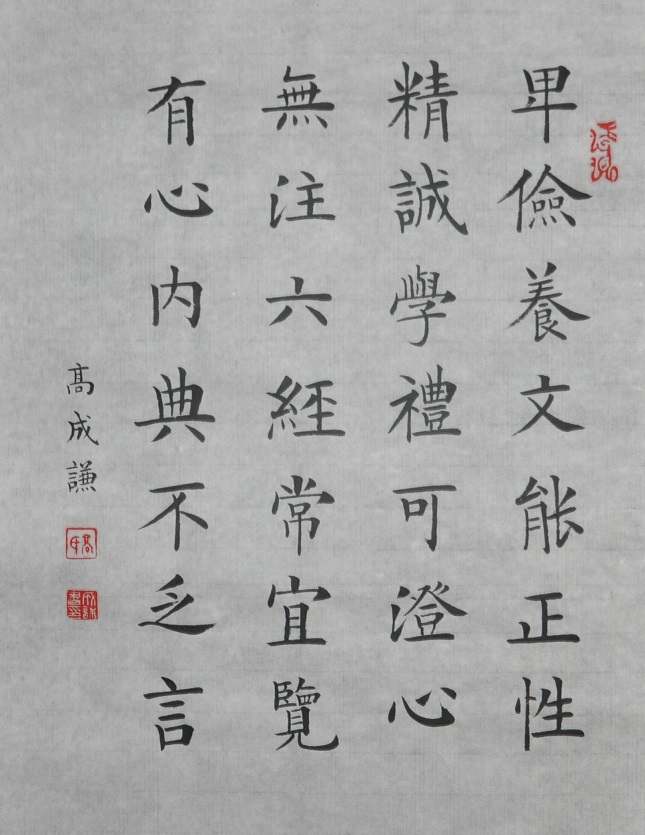 卑儉養文能正性
精誠學禮可澄心
無注六經常宜覽
有心内典不乏言
高成謙